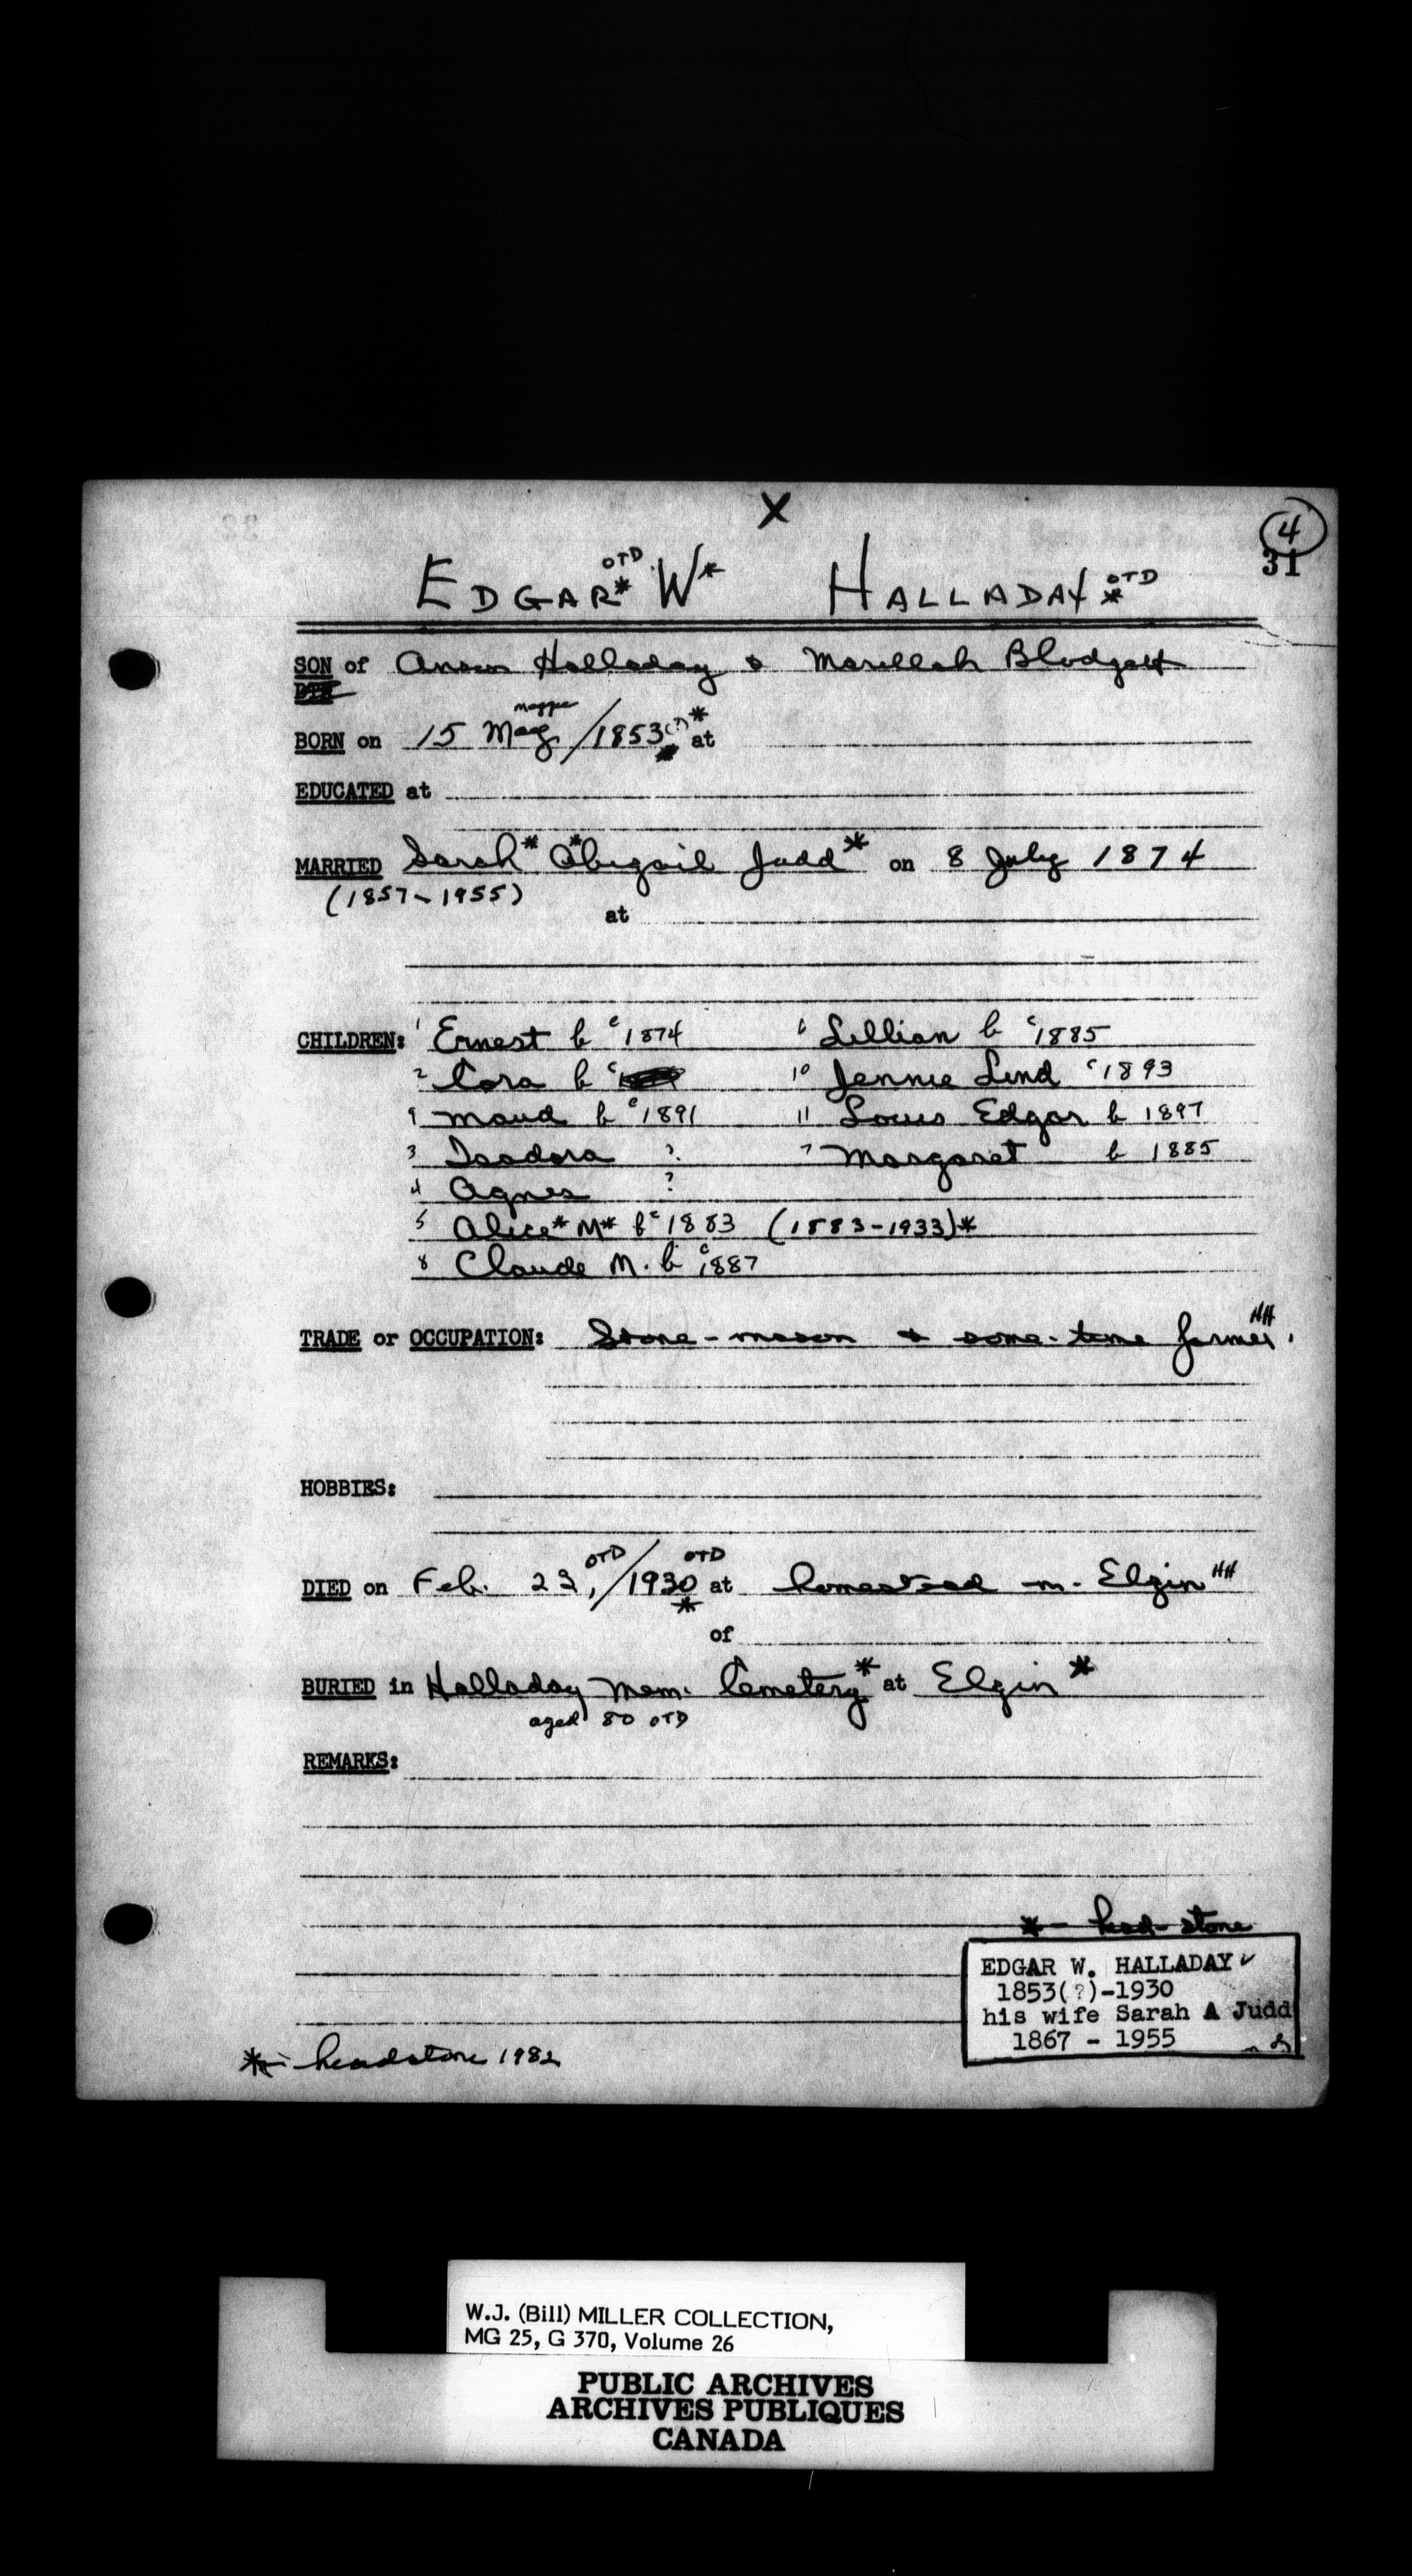 X
4
31
OTD OTD
EDGAR* W* HALLADAY*
SON of Anson Halladay & Marillah Blodgett
DTR
Maggie
BORN on 15 May /1853(?)* at
EDUCATED at
MARRIED Sarah* Abigail* Judd* on 8 July 1874
(1857-1955)
at
CHILDREN: 1 Ernest b c1874 6 Lillian b c1885
2 Cora b c 10 Jennie Lind c1893
9 Maud b c1891 11 Louis Edgar b 1897
3 Isadora ? 7 Margaret b 1885
4 Agnes ?
5 Alice* M* b c1883 (1883-1933)*
8 Claude M. b c1887
TRADE or OCCUPATION: Stone-mason & some-time farmer. HH
HOBBIES:
OTD OTD
DIED on Feb. 23, /1930 at homestead n. Elgin HH
*
of
BURIED in Halladay Mem. Cemetery* at Elgin*
aged 80 OTD
REMARKS:
* - head-stone
EDGAR W. HALLADAY ✓
1853(?)-1930
his wife Sarah A Judd
1867 - 1955
* - headstone 1982
W.J. (Bill) MILLER COLLECTION,
MG 25, G 370, Volume 26
PUBLIC ARCHIVES
ARCHIVES PUBLIQUES
CANADA